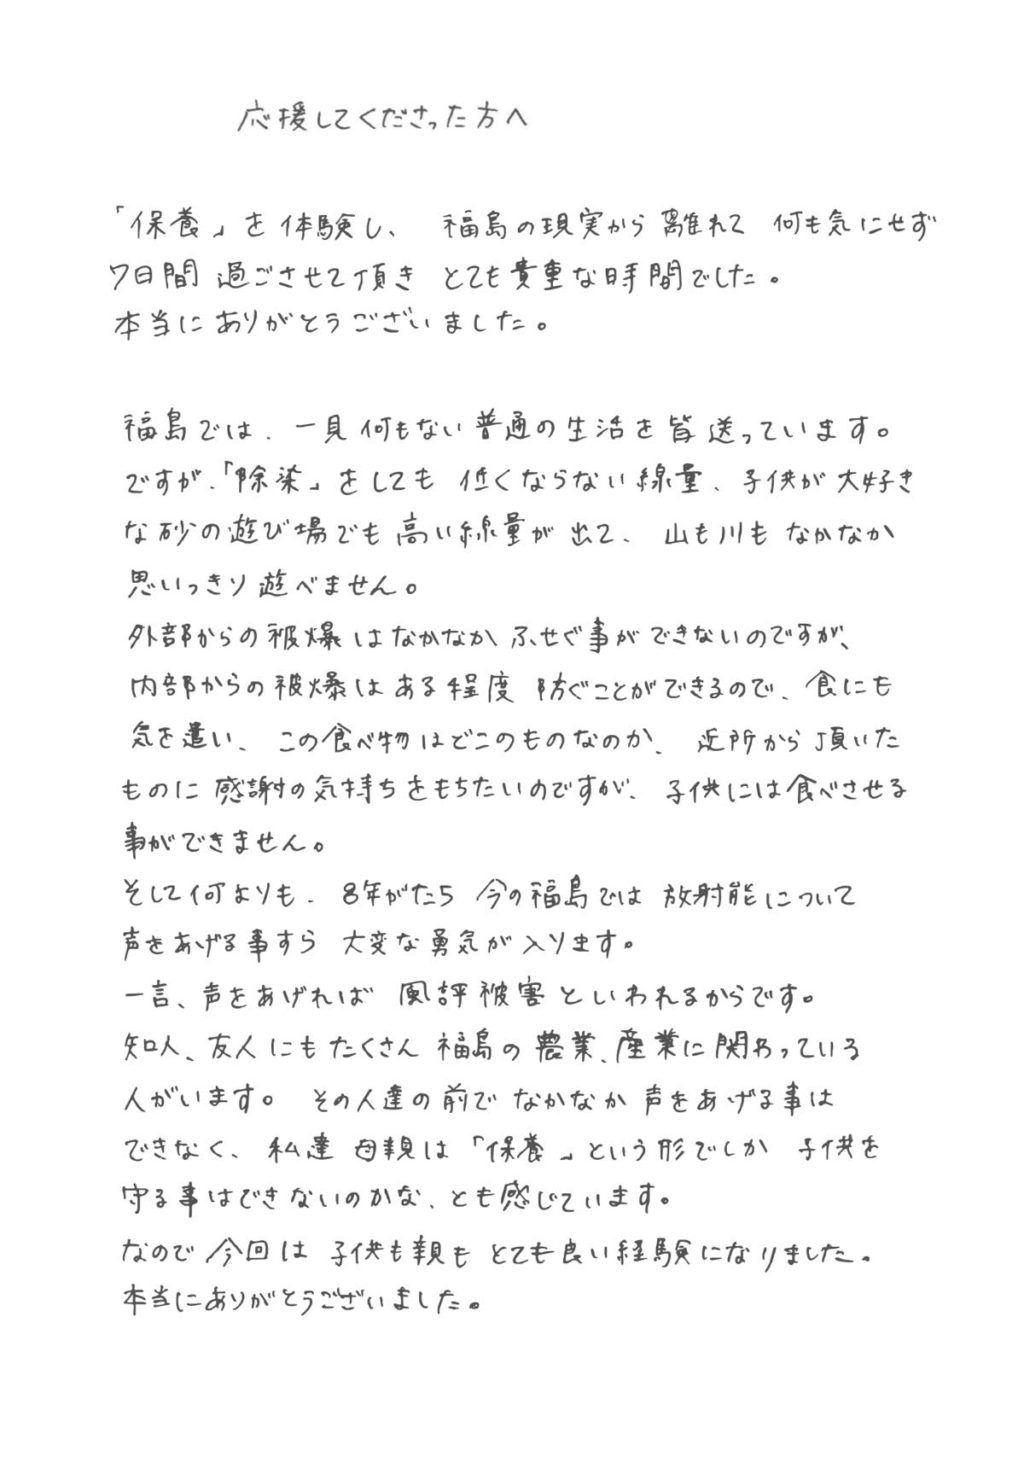 応援してくださった方へ
「保養」を体験し、福島の現実から離れて何も気にせず
7日間過ごさせて頂きとても貴重な時間でした。
本当にありがとうございました。
福島では、一見何もない普通の生活を皆送っています。
ですが、「除染」をしても低くならない線量、子供が大好き
な砂の遊び場でも高い線量が出て、山も川もなかなか
思いっきり遊べません。
外部からの被爆はなかなかふせぐ事ができないのですが、
内部からの被爆はある程度防ぐことができるので、食にも
気を遣い、この食べ物はどこのものなのか、近所から頂いた
ものに感謝の気持ちをもちたいのですが、子供には食べさせる
事ができません。
そして何よりも、8年がたち今の福島では放射能について
声をあげる事すら大変な勇気が入ります。
一言、声をあげれば風評被害といわれるからです。
知人、友人にもたくさん福島の農業、産業に関わっている
人がいます。その人達の前でなかなか声をあげる事は
できなく、私達母親は「保養」という形でしか子供を
守る事はできないのかな、とも感じています。
なので今回は子供も親もとても良い経験になりました。
本当にありがとうございました。